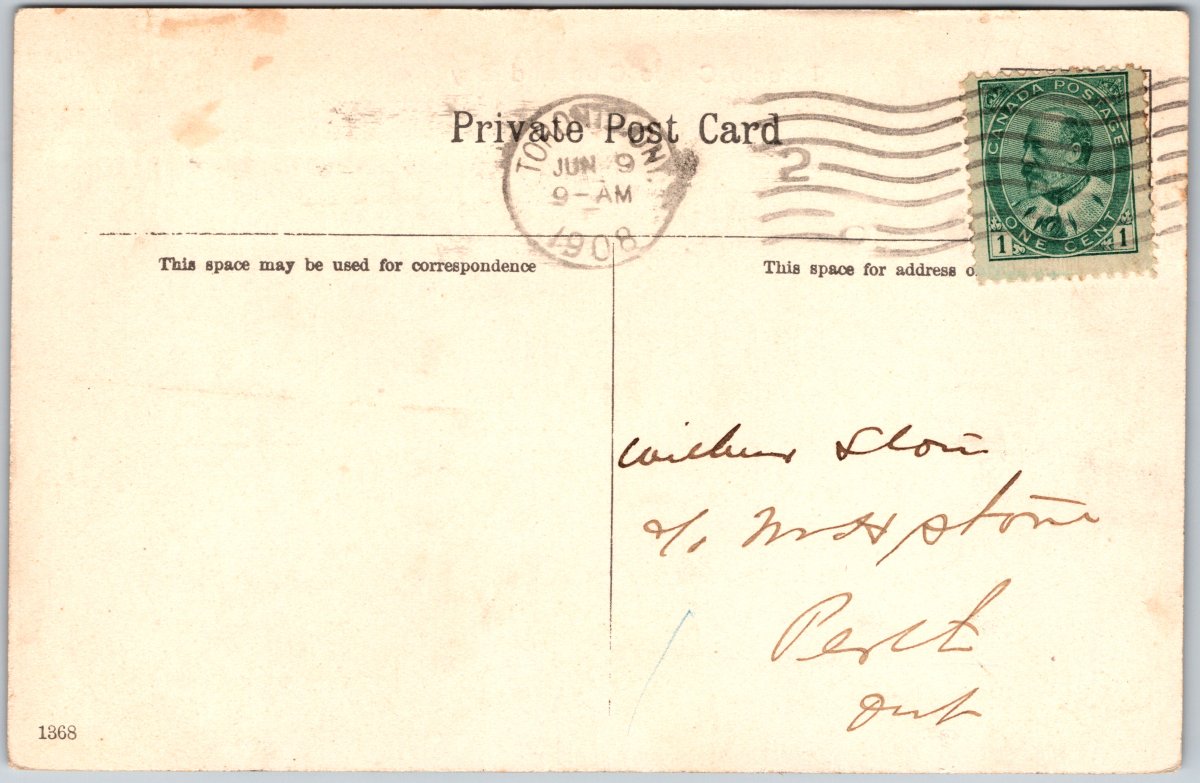 Private Post Card
TORONTO, ONT.
JUN 9
9-AM
1908
2
CANADA POSTAGE
1 ONE CENT 1
This space may be used for correspondence
This space for address o
Wilbur
c/o Stone
Perth
Ont
1368